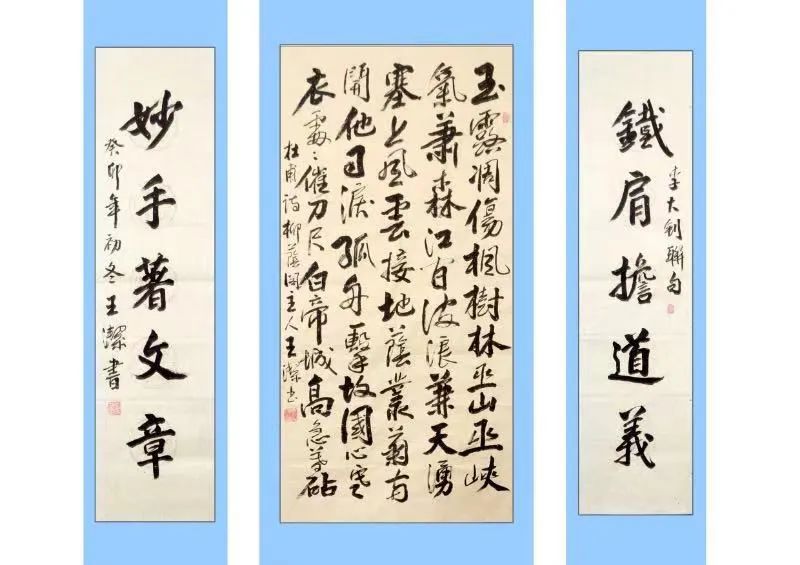 鐵肩擔道義
李大釗聯句
玉露凋傷楓樹林巫山巫峽
氣蕭森江间波浪兼天湧
塞上風雲接地蔭叢菊兩
開他日淚孤舟繫故國心寒
衣處〻催刀尺白帝城高急暮砧
杜甫詩柳蔭閣主人王潔书
妙手著文章
癸卯年初冬王潔書